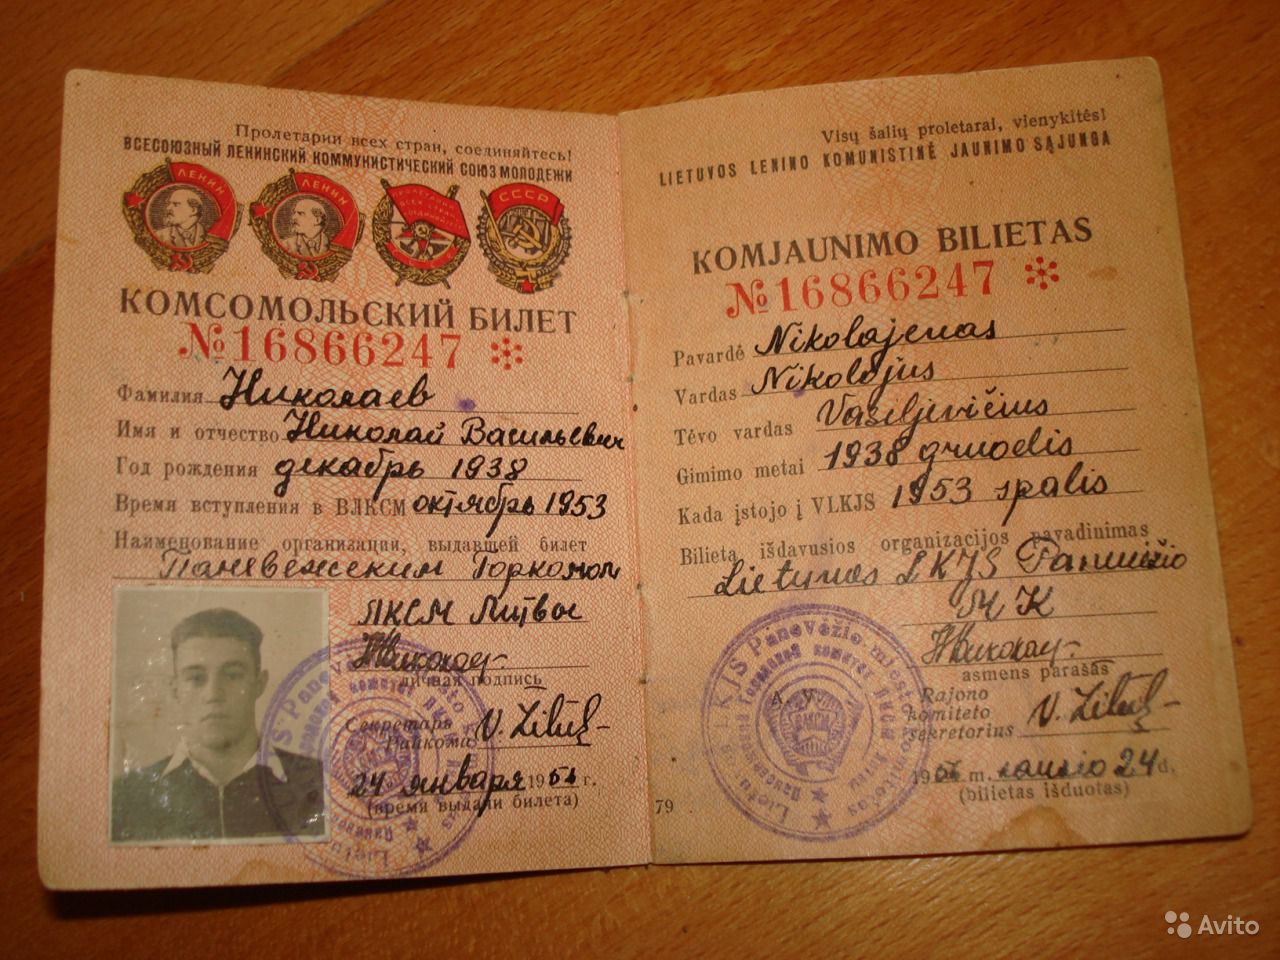 Пролетарии всех стран, соединяйтесь!
ВСЕСОЮЗНЫЙ ЛЕНИНСКИЙ КОММУНИСТИЧЕСКИЙ СОЮЗ МОЛОДЕЖИ
ЛЕНИН
ЛЕНИН
ПРОЛЕТАРИИ ВСЕХ СТРАН СОЕДИНЯЙТЕСЬ
СССР
КОМСОМОЛЬСКИЙ БИЛЕТ
№16866247
Фамилия Николаев
Имя и отчество Николай Васильевич
Год рождения декабрь 1938
Время вступления в ВЛКСМ октябрь 1953
Наименование организации, выдавшей билет
Паневежским Горкомом
ЛКСМ Литвы
Николаев
личная подпись
Секретарь
Райкома V.
24 января 195 г.
(время выдачи билета)
Visų šalių proletarai, vienykitės!
LIETUVOS LENINO KOMUNISTINĖ JAUNIMO SĄJUNGA
KOMJAUNIMO BILIETAS
№16866247
Pavardė Nikolajevas
Vardas Nikolajus
Tėvo vardas Vasiljevičius
Gimimo metai 1938 gruodis
Kada įstojo į VLKJS 1953 spalis
Bilietą išdavusios organizacijos pavadinimas
Lietuvos LKJS Panevėžio
MK
Николаев
asmens parašas
A. V.
Rajono
komiteto
sekretorius V.
195 m. sausio 24 d.
(bilietas išduotas)
79
Avito